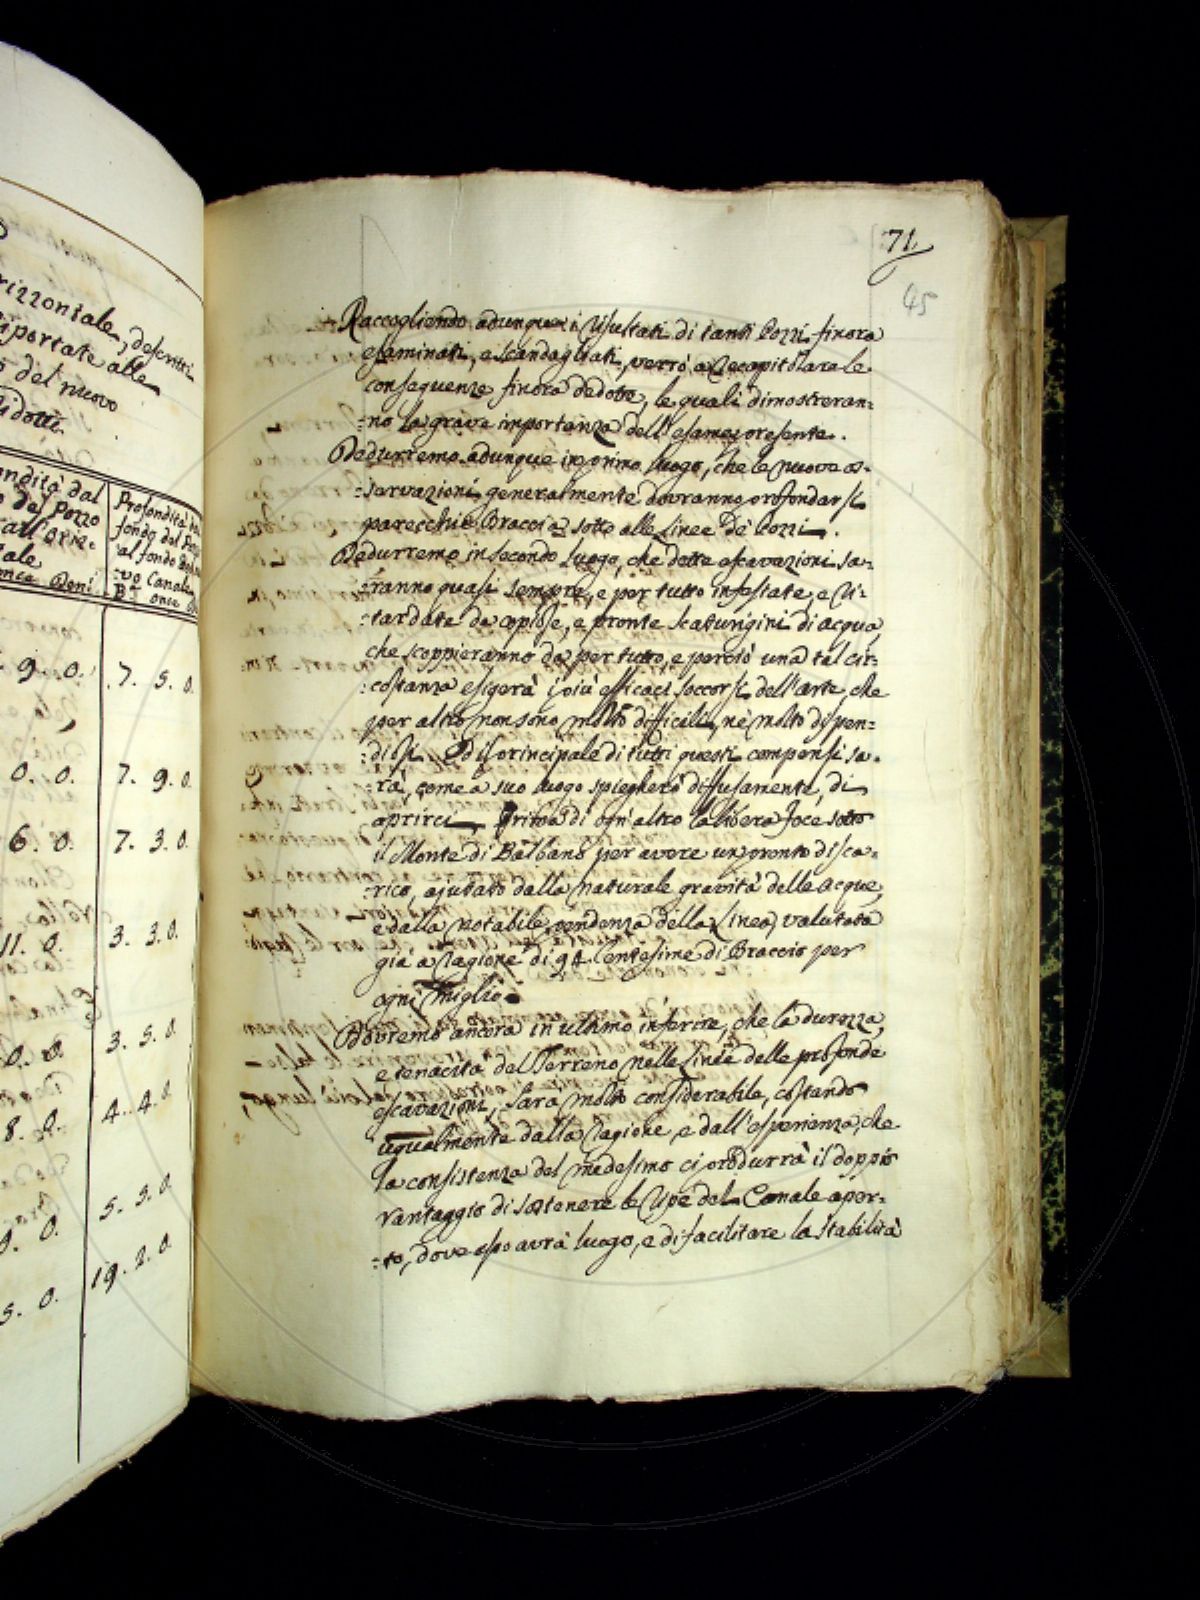 rizzontale, descritti
riportate alle
del nuovo
ridotti.
Profondità dal
fondo del Pozzo
al fondo del nuo-
:vo Canale
Bª once
9. 0. 7. 5. 0.
0. 0. 7. 9. 0.
6. 0. 7. 3. 0.
11. 0. 3. 3. 0.
0. 0. 3. 5. 0.
8. 0. 4. 4. 0.
9. 0. 5. 5. 0.
5. 0. 19. 2. 0.
71
45
Raccogliendo adunque i risultati di tanti Pozzi finora
esaminati, e scandagliati, verrò a recapitolare le
conseguenze finora dedotte, le quali dimostreran=
:no la grave importanza dell'esame presente.
Dedurremo adunque in primo luogo, che le nuove es=
:servazioni generalmente dovranno profondarsi
parecchie Braccia sotto alle Linee de' Pozzi.
Dedurremo in secondo luogo, che dette escavazioni sa=
:ranno quasi sempre, e per tutto infestate, e ri=
:tardate da copiose, e pronte scaturigini di acqua,
che scoppieranno da per tutto, e perciò una tal cir=
:costanza esigerà i più efficaci soccorsi dell'arte, che
per altro non sono molto difficili, nè molto dispen=
:diosi. Ed il principale di tutti questi compensi sa=
:rà, come a suo luogo spiegherò diffusamente, di
aprirci prima di ogn'altro la libera foce sotto
il Monte di Balbano per avere un pronto disca=
:rico, ajutato dalla naturale gravità delle acque,
e dalla notabile pendenza della Linea, valutata
già a ragione di 94 Centesime di Braccio per
ogni miglio.
Dovremo ancora in ultimo inferire, che la durezza,
e tenacità del Terreno nelle Linee delle profonde
escavazioni, sarà molto considerabile, costando
ugualmente dalla ragione, e dall'esperienza, che
la consistenza del medesimo ci produrrà il doppio
vantaggio di sostenere le ripe del Canale aper=
:to, dove esso avrà luogo, e di facilitare la stabilità